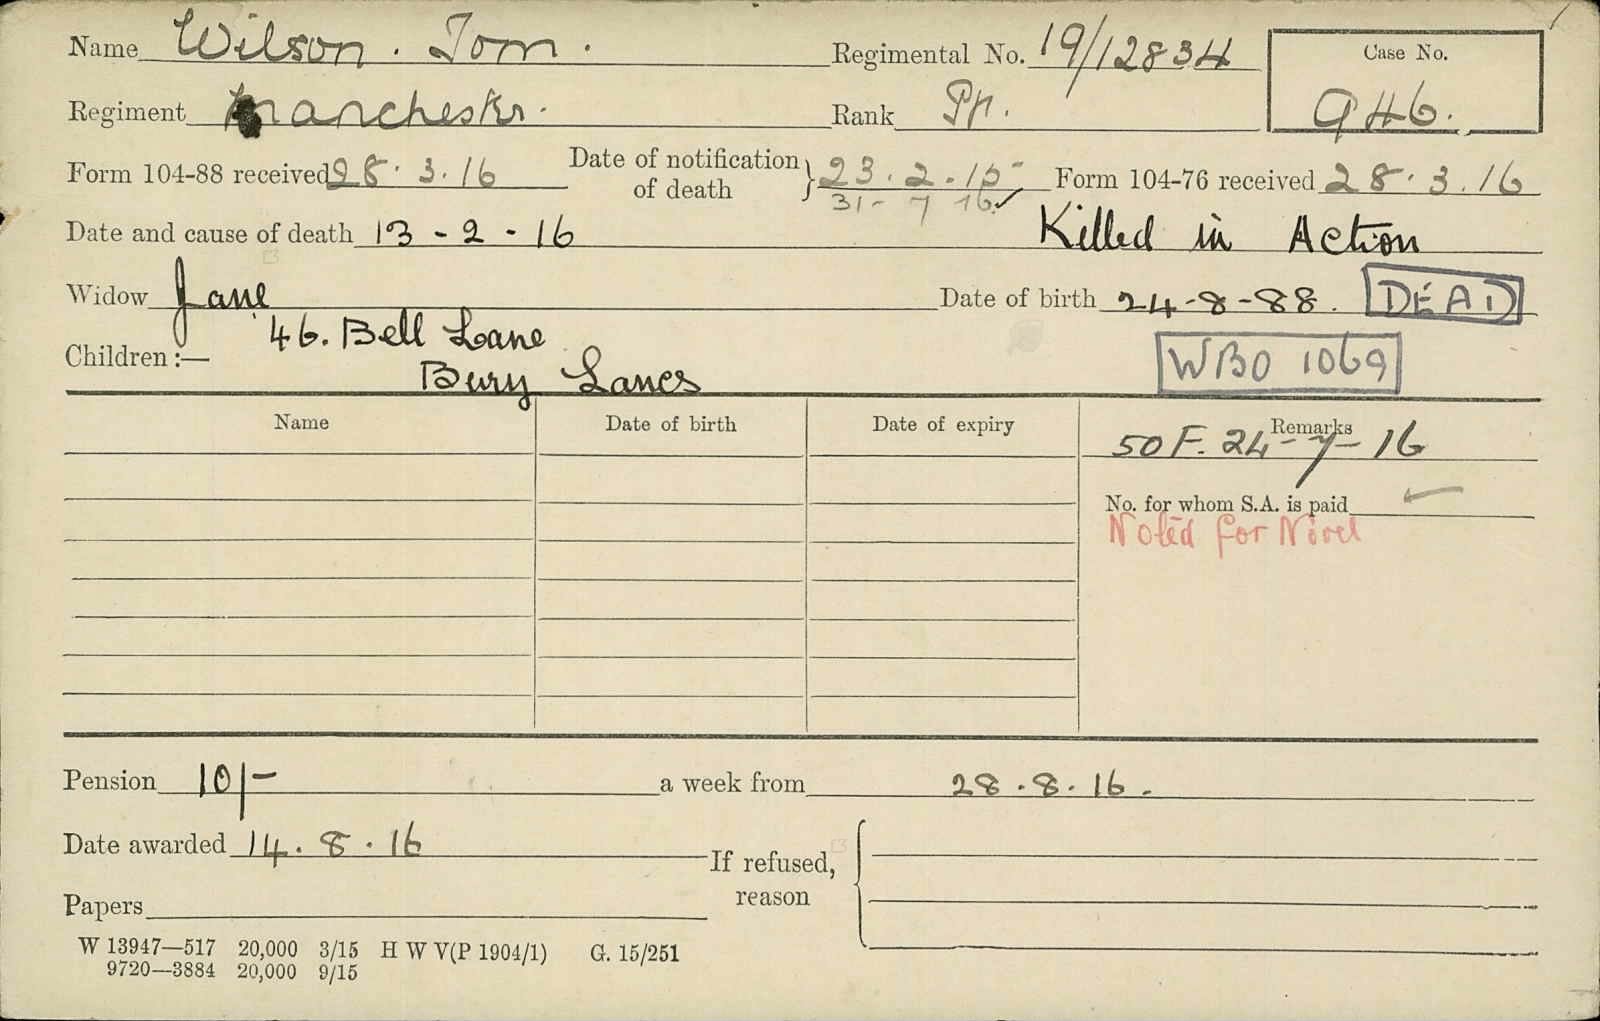 Name Wilson. Tom. Regimental No. 19/12834 Case No.
Regiment Manchester. Rank Pte. 946.
Form 104-88 received 28.3.16 Date of notification of death 23.2.15 Form 104-76 received 28.3.16
31-7 16 ✓
Date and cause of death 13-2-16 Killed in Action
Widow Jane Date of birth 24-8-88. DEAD
46. Bell Lane
Children:— Bury Lancs WBO 1069
Name Date of birth Date of expiry Remarks
50F. 24-7-16
No. for whom S.A. is paid
Noted for Nivel
Pension 10/- a week from 28.8.16.
Date awarded 14.8.16
If refused,
reason
Papers
W 13947—517 20,000 3/15 H W V(P 1904/1) G. 15/251
9720—3884 20,000 9/15